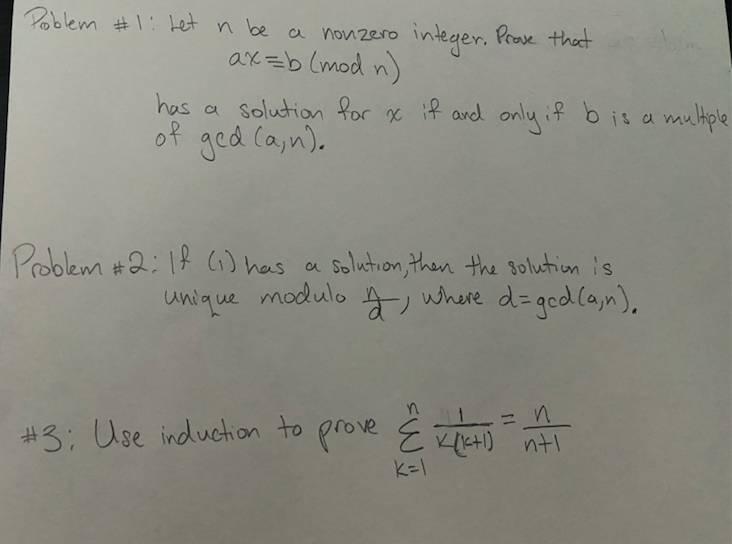 Problem #1: Let n be a nonzero integer. Prove that
ax≡b (mod n)
has a solution for x if and only if b is a multiple
of gcd (a,n).
Problem #2: If (1) has a solution, then the solution is
unique modulo n/d, where d=gcd(a,n).
#3: Use induction to prove Σ_{k=1}^{n} 1/(k(k+1)) = n/(n+1)